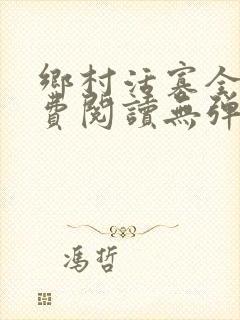 鄉村活寡全
費閱讀無彈
馮哲